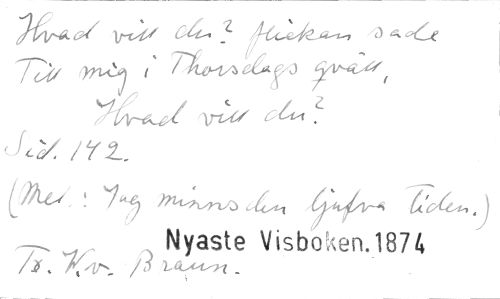 Hvad vill du? flickan sade
Till mig i Thorsdags qväll,
Hvad vill du?
Sid. 142.
(Mel.: Jag minns den ljufva tiden.)
Nyaste Visboken. 1874
Tr. K.v. Braun.